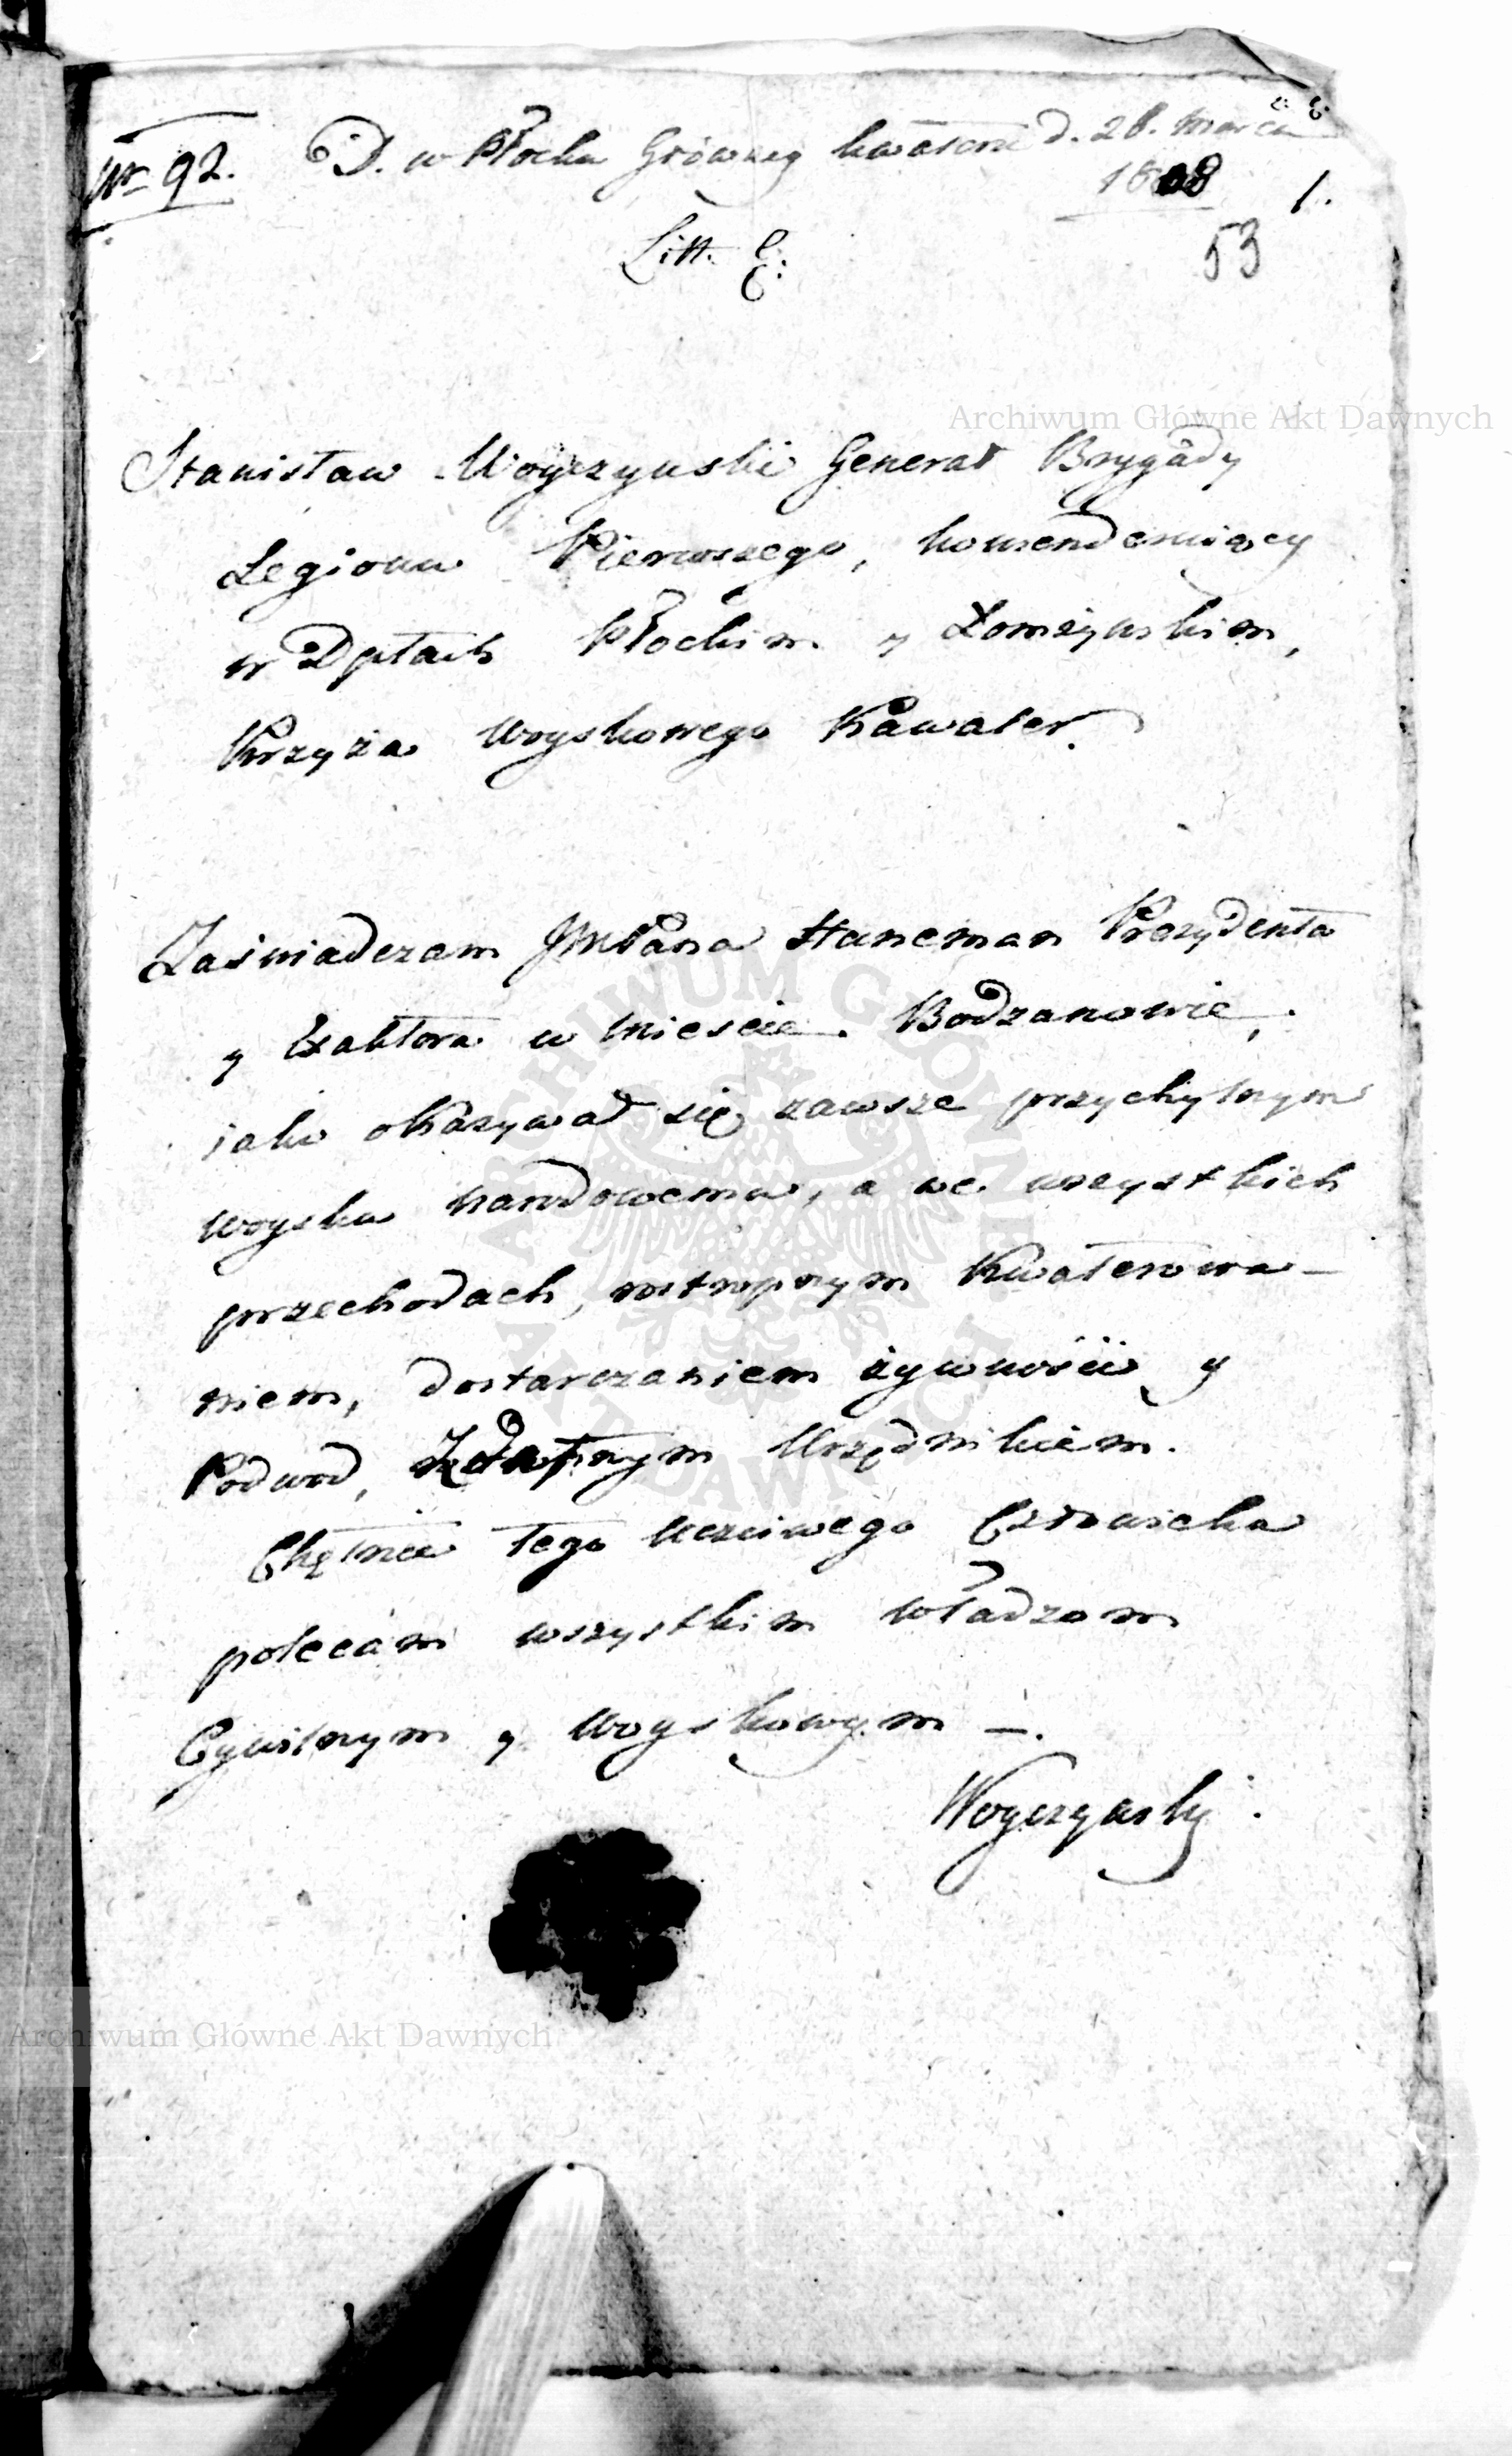 Nr 92. D. w Płocku Główney kwaterze d. 28. Marca
1808 1.
53
Litt. E:
Archiwum Główne Akt Dawnych
Stanisław Woyczynski Generał Brygady
Legionu Pierwszego, komenderuiący
w Dptach Płockim y Łomżynskim,
Krzyża Woyskowego Kawaler.
Zaświadczam JMPana Haneman Prezydenta
y Exaktora w Mieście Bodzanowie,
iako okazywał się zawsze przychylnym
woysku narodowemu, a we wszystkich
przechodach, roztropnym Kwaterowa-
niem, dostarczaniem żywności y
Podwod, Urzędnikiem.
Chętnie tego Uczciwego Człowieka
polecam wszystkim Władzom
Cywilnym y Woyskowym —.
Woyczynsky
Archiwum Główne Akt Dawnych
ARCHIWUM GŁÓWNE AKT DAWNYCH